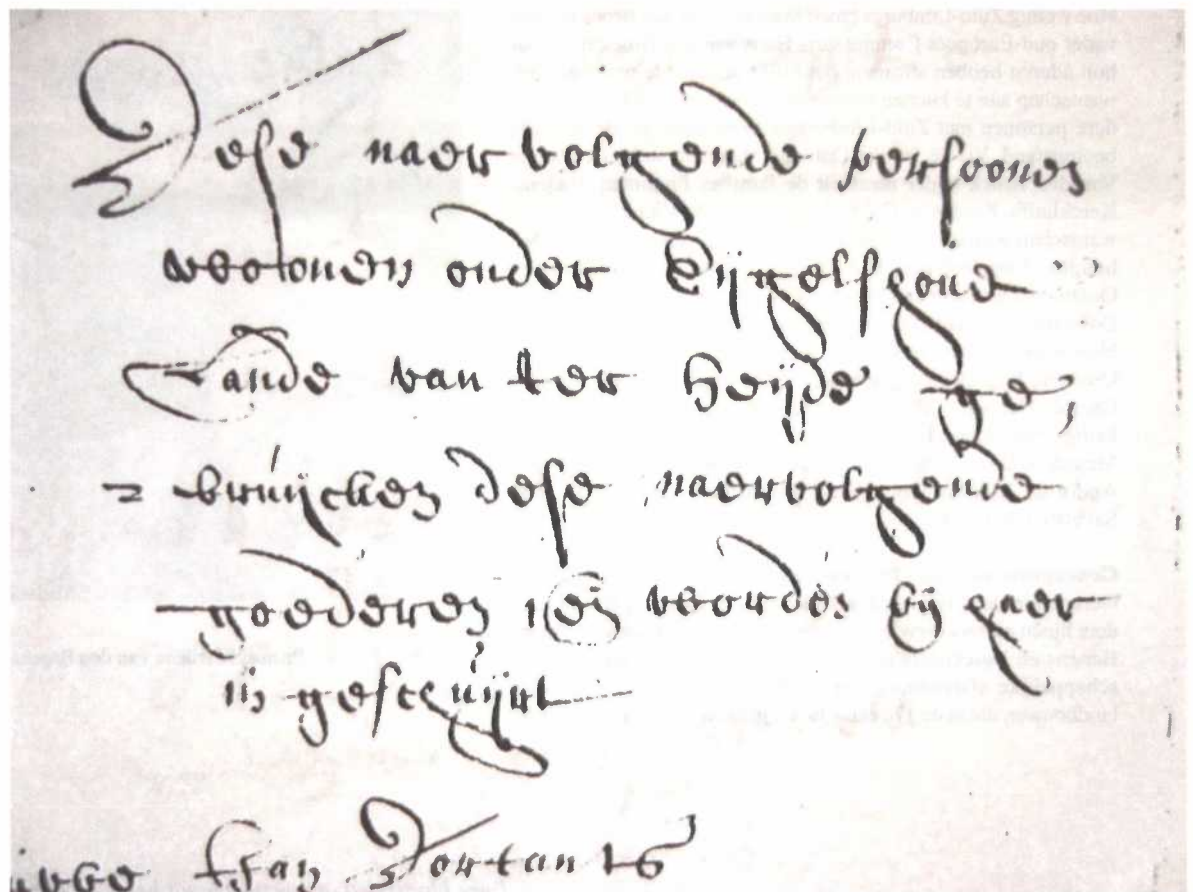 Dese naer volgende persoonen
woonen onder Eijgelshoue
Lande van ter Heijde ge,
= bruijcken dese naervolgende
goederen en worden bij haer
in gescuijrt
Jan Dortants